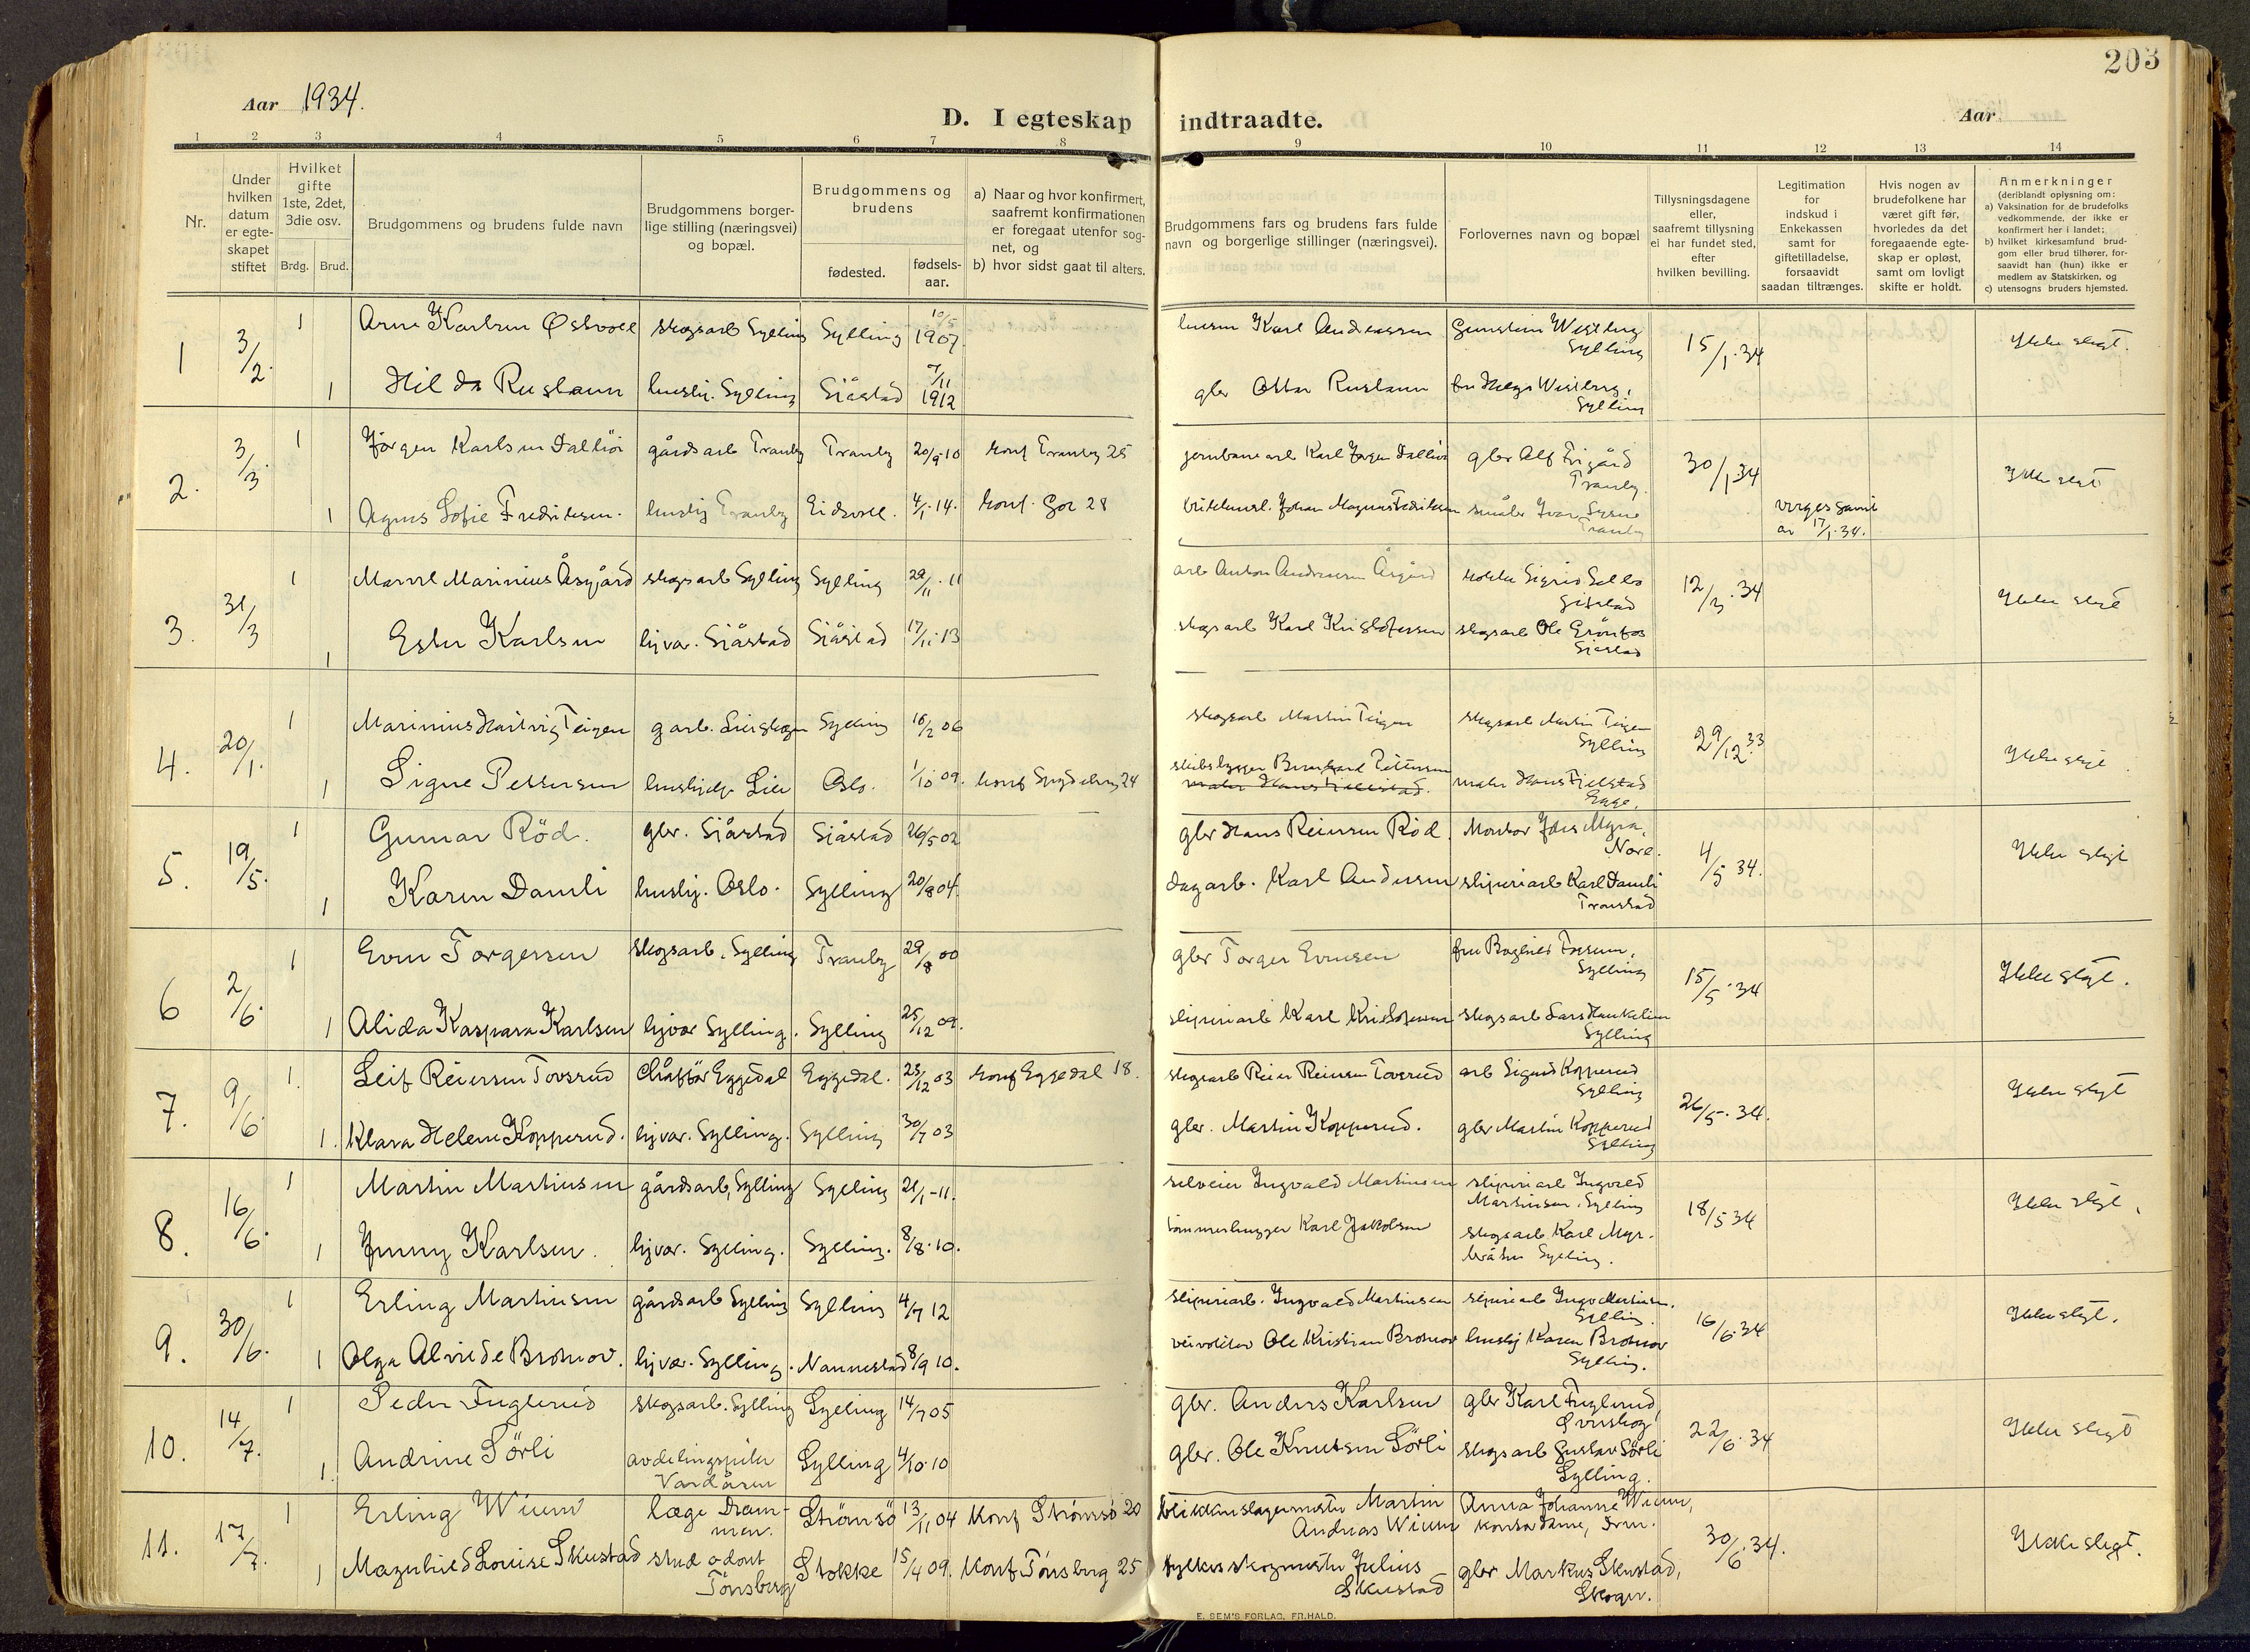 203
Aar 1934.
D. I egteskap indtraadte.
Aar
1 2 3 4 5 6 7 8 9 10 11 12 13 14
Nr.
Under hvilken datum er egteskapet stiftet
Hvilket gifte 1ste, 2det, 3die osv.
Brdg. Brud.
Brudgommens og brudens fulde navn
Brudgommens borgerlige stilling (næringsvei) og bopæl.
Brudgommens og brudens
fødested.
fødselsaar.
a) Naar og hvor konfirmert, saafremt konfirmationen er foregaat utenfor sognet, og
b) hvor sidst gaat til alters.
Brudgommens fars og brudens fars fulde navn og borgerlige stillinger (næringsvei).
Forlovernes navn og bopæl
Tillysningsdagene eller, saafremt tillysning ei har fundet sted, efter hvilken bevilling.
Legitimation for indskud i Enkekassen samt for giftetilladelse, forsaavidt saadan tiltrænges.
Hvis nogen av brudefolkene har været gift før, hvorledes da det foregaaende egteskap er opløst, samt om lovligt skifte er holdt.
Anmerkninger
(deriblandt oplysning om:
a) Vaksination for de brudefolks vedkommende, der ikke er konfirmert her i landet;
b) hvilket kirkesamfund brudgom eller brud tilhører, forsaavidt han (hun) ikke er medlem av Statskirken, og
c) utensogns bruders hjemsted.
1 3/2. 1 Arne Karlsen Østvoll skogsarb Sylling Sylling 10/5 1907 Karl Andreassen Gunstein Wistberg Sylling 15/1.34 Ikke slegt.
1 Hilda Ruslaun hushj. Sylling Sjåstad 7/11 1912 gbr Ottar Ruslaun fru Helga Wistberg, Sylling
2. 3/3. 1 Jørgen Karlsen Dalliør gårdsarb Tranby Tranby 20/9.10 konf Tranby 25 jernbanearb Karl Jørgen gbr Alf Frigård Tranby. 30/1 34 Ikke slegt
1 Agnes Sofie Fredriksen. hushj Tranby Eidsvoll. 4/1.14. konf. Gol 28 Johan Magnus Fredriksen småbr Ivar Tranby verges samt. av 17/1.34.
3. 31/3 1 Marinius Åsgård skogsarb Sylling Sylling 29/11.11 arb Anton Andreassen Åsgård kokke Sigrid Sjåstad 12/3.34 Ikke slegt
1 Ester Karlsen hj.var. Sjåstad Sjåstad 17/11.13 skogsarb Karl Kristofersen skogsarb Ole Grönfos Sjåstad
4. 20/1. 1 Marinius Hartvig Teigen g.arb. Lierskogen Sylling 16/2 06 skogsarb Martin Teigen skogsarb Martin Teigen Sylling 29/12.33 Ikke slegt.
1 Signe Pettersen hushjelp Lier Oslo. 1/10 09. konf 24 skibsbygger Bernhard Pettersen maler Hans Fjelstad. maler Hans Fjelstad Egge.
5. 19/5. 1 Gunnar Röd. gbr. Sjåstad Sjåstad 26/5 02 gbr Hans Reiersen Röd. Montør Jens Myra, Nore. 4/5 34. Ikke slegt
1 Karen Damli hushj. Oslo. Sylling 20/8 04. dagarb. Karl Andersen sliperiarb Karl Damli Tronstad
6 2/6. 1 Even Torgersen skogsarb. Sylling Tranby 29/8 00 gbr Torger Evensen fru Fossum, Sylling 15/5.34 Ikke slegt.
1 Alida Kaspara Karlsen hjvar Sylling. Sylling 25/12 09. sliperiarb Karl Kristofersen skogsarb Lars Sylling
7. 9/6. 1. Leif Reiersen Tovsrud Chåffør Eggedal Eggedal. 23/12 03 konf Eggedal 18. skogsarb Reier Reiersen Tovsrud arb Sigurd Kopperud Sylling 26/5.34. Ikke slegt
1. Klara Helene Kopperud. hjvar. Sylling. Sylling 30/7 03 gbr. Martin Kopperud. gbr Martin Kopperud Sylling
8. 16/6. 1 Martin Martinsen gårdsarb, Sylling Sylling 21/1-11. selveier Ingvald Martinsen sliperiarb Ingvald Martinsen, Sylling 18/5 34 Ikke slegt.
1 Jenny Karlsen. hjvar. Sylling. Sylling. 8/8.10. tømmerhugger Karl Jakobsen skogsarb Karl Myrbråten Sylling.
9. 30/6. 1 Erling Martinsen gårdsarb Sylling Sylling 4/7 12 sliperiarb. Ingvald Martinsen sliperiarb Ingv. Martinsen. Sylling. 16/6.34 Ikke slegt.
1 Olga Alvide Bromov. hjvar. Sylling. Nannestad 8/9 10. veivokter Ole Kristian Bromov hushj Karen Bromov Sylling.
10. 14/7. 1 Peder Fuglerud skogsarb. Sylling Sylling 14/7 05 gbr. Anders Karlsen gbr Karl Fuglerud, 22/6.34 Ikke slegt
1. Andrine Sörli Vardåsen Sylling 4/10.10 gbr. Ole Knutsen Sörli skogsarb Gustav Sörli Sylling.
11. 17/7. 1 Erling Wium læge Drammen. Strömsö 13/11 04 Konf Strömsö 20 blikkenslagermester Martin Andreas Wium Anna Johanne Wium, kontordame, Drm. 30/6.34. Ikke slegt.
1 Magnhild Louise Skustad stud odont Tönsberg Stokke 15/4 09. Konf Tönsberg 25 fylkesskogmester Julius Skustad gbr Markus Skustad, Skoger.
E. SEM'S FORLAG, FR.HALD.